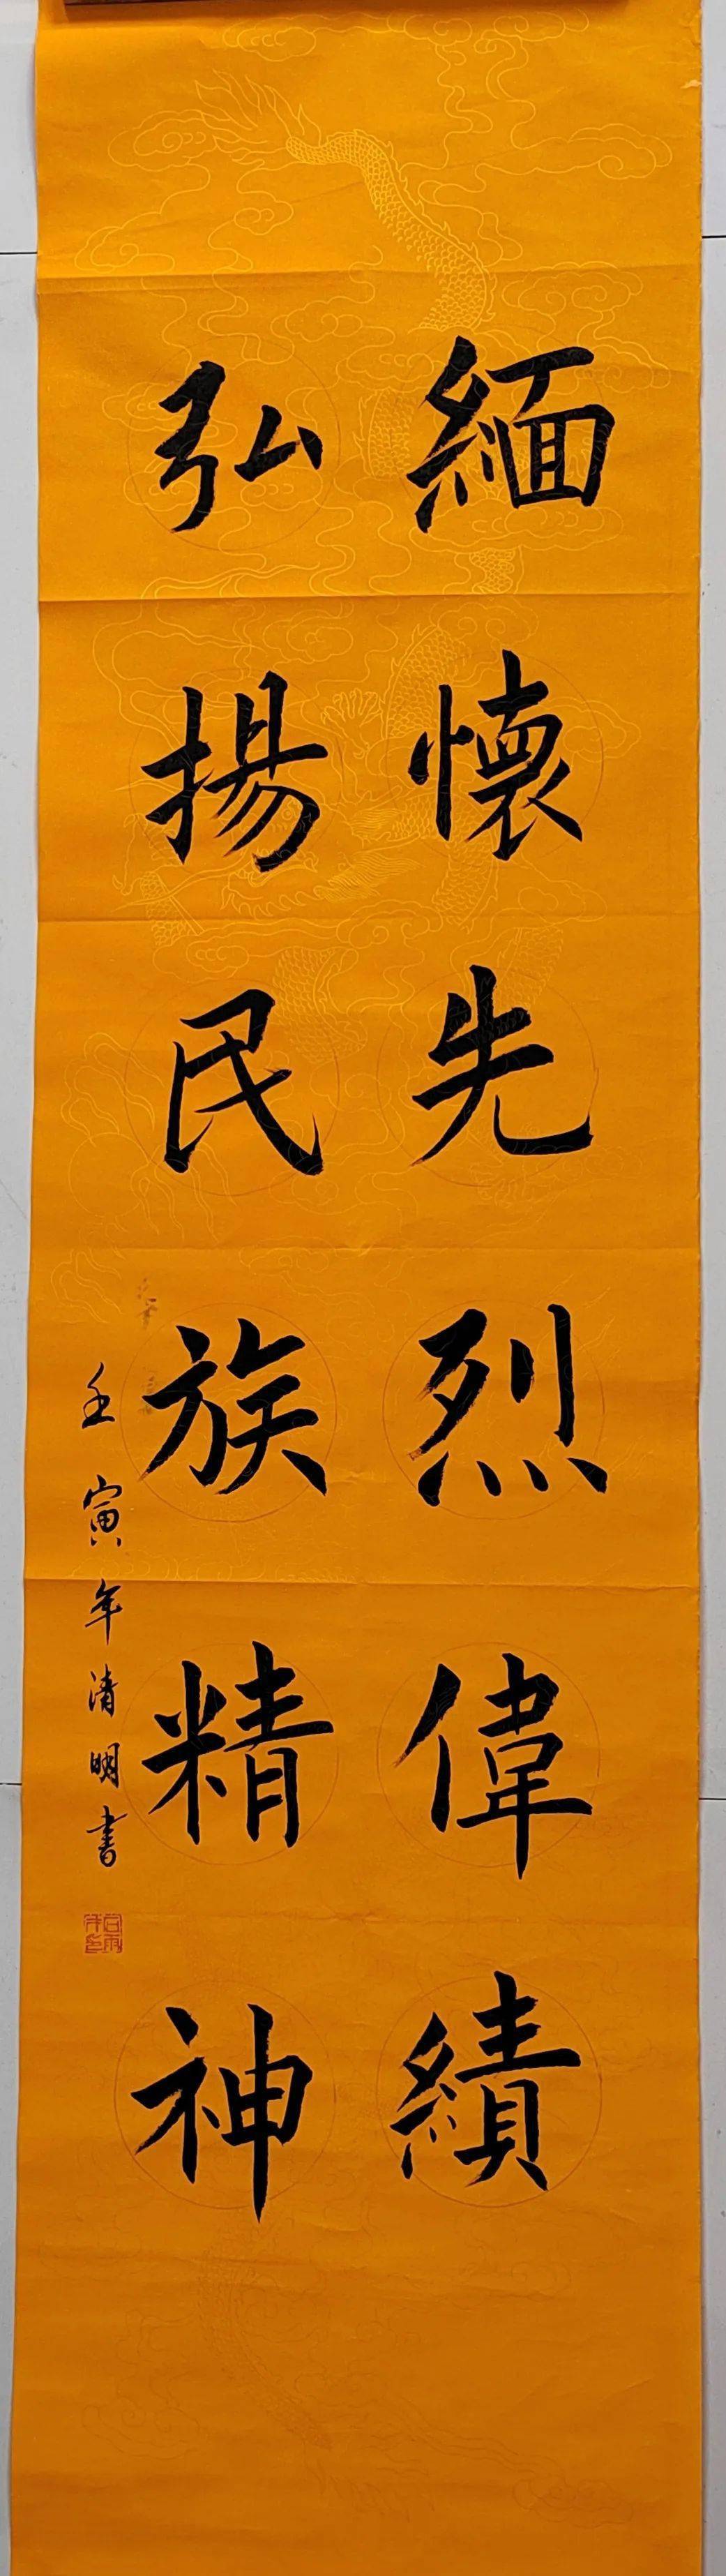 緬懷先烈偉績
弘揚民族精神
壬寅年清明書